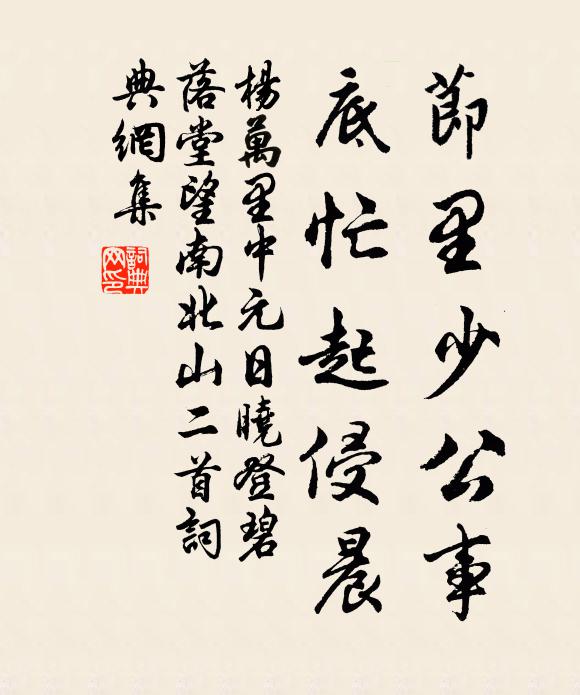 節里少公事
底忙起侵晨
楊萬里中元日曉登碧
落堂望南北山二首詞
典網集
詞典網印